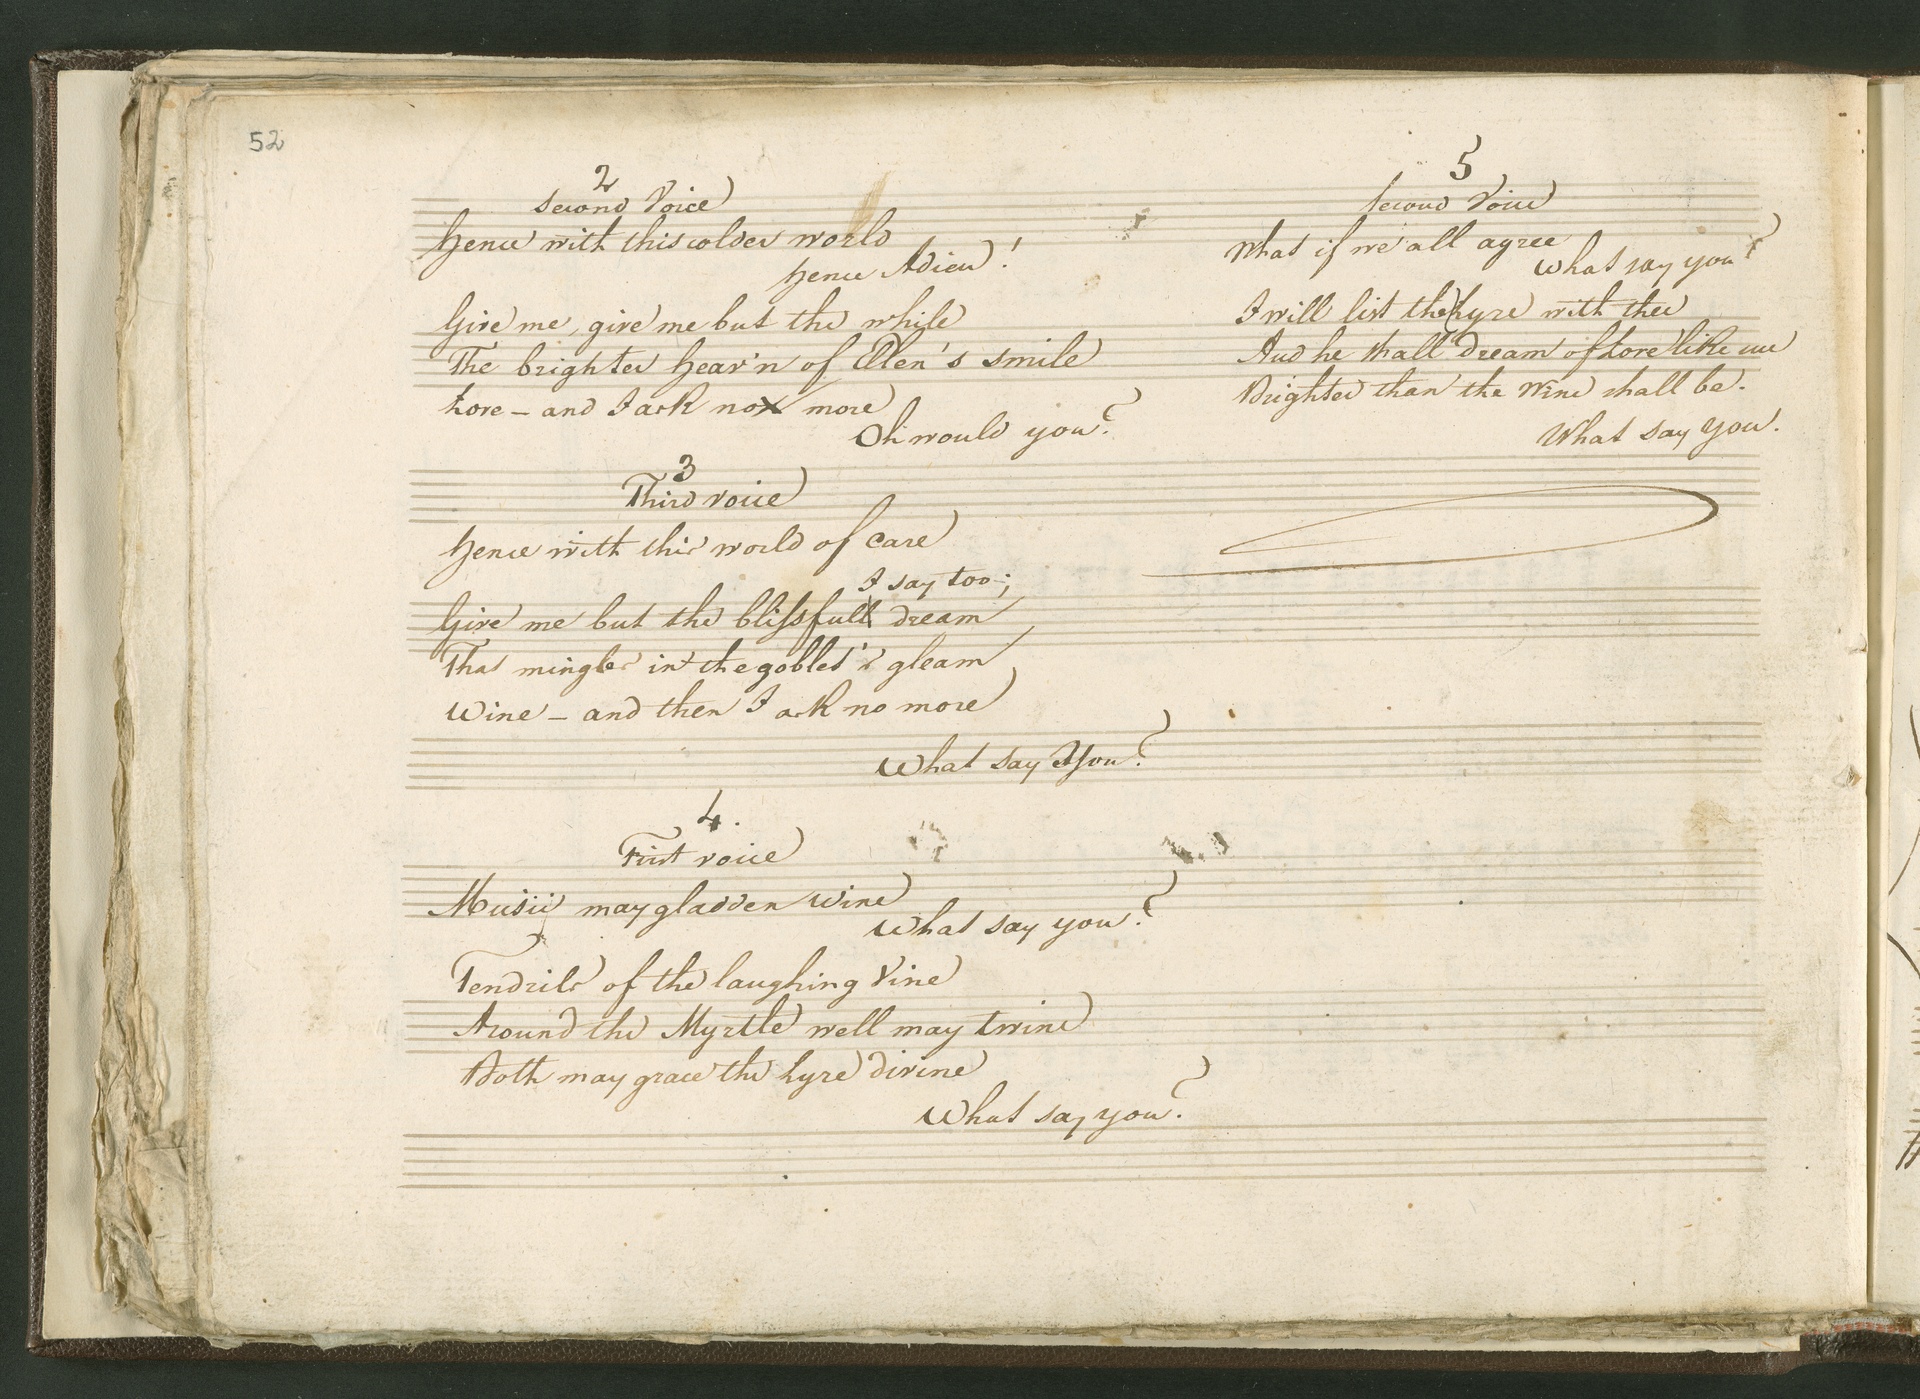 52
2
Second Voice
Hence with this colder world
Hence Adieu!
Give me, give me but the while
The brighter Heav'n of Ellen's smile
Love – and I ask no more
Oh would you?
3
Third voice
Hence with this world of care
I say too;
Give me but the blissful dream
That mingles in the goblet's gleam
Wine – and then I ask no more
What say You?
4.
First voice
Music may gladden wine
What say you?
Tendrils of the laughing Vine
Around the Myrtle well may twine
Both may grace the Lyre divine
What say you?
5
Second Voice
What if we all agree
What say you?
I will list the Lyre with thee
And he shall dream of Love like me
Brighter than the Wine shall be.
What say You.